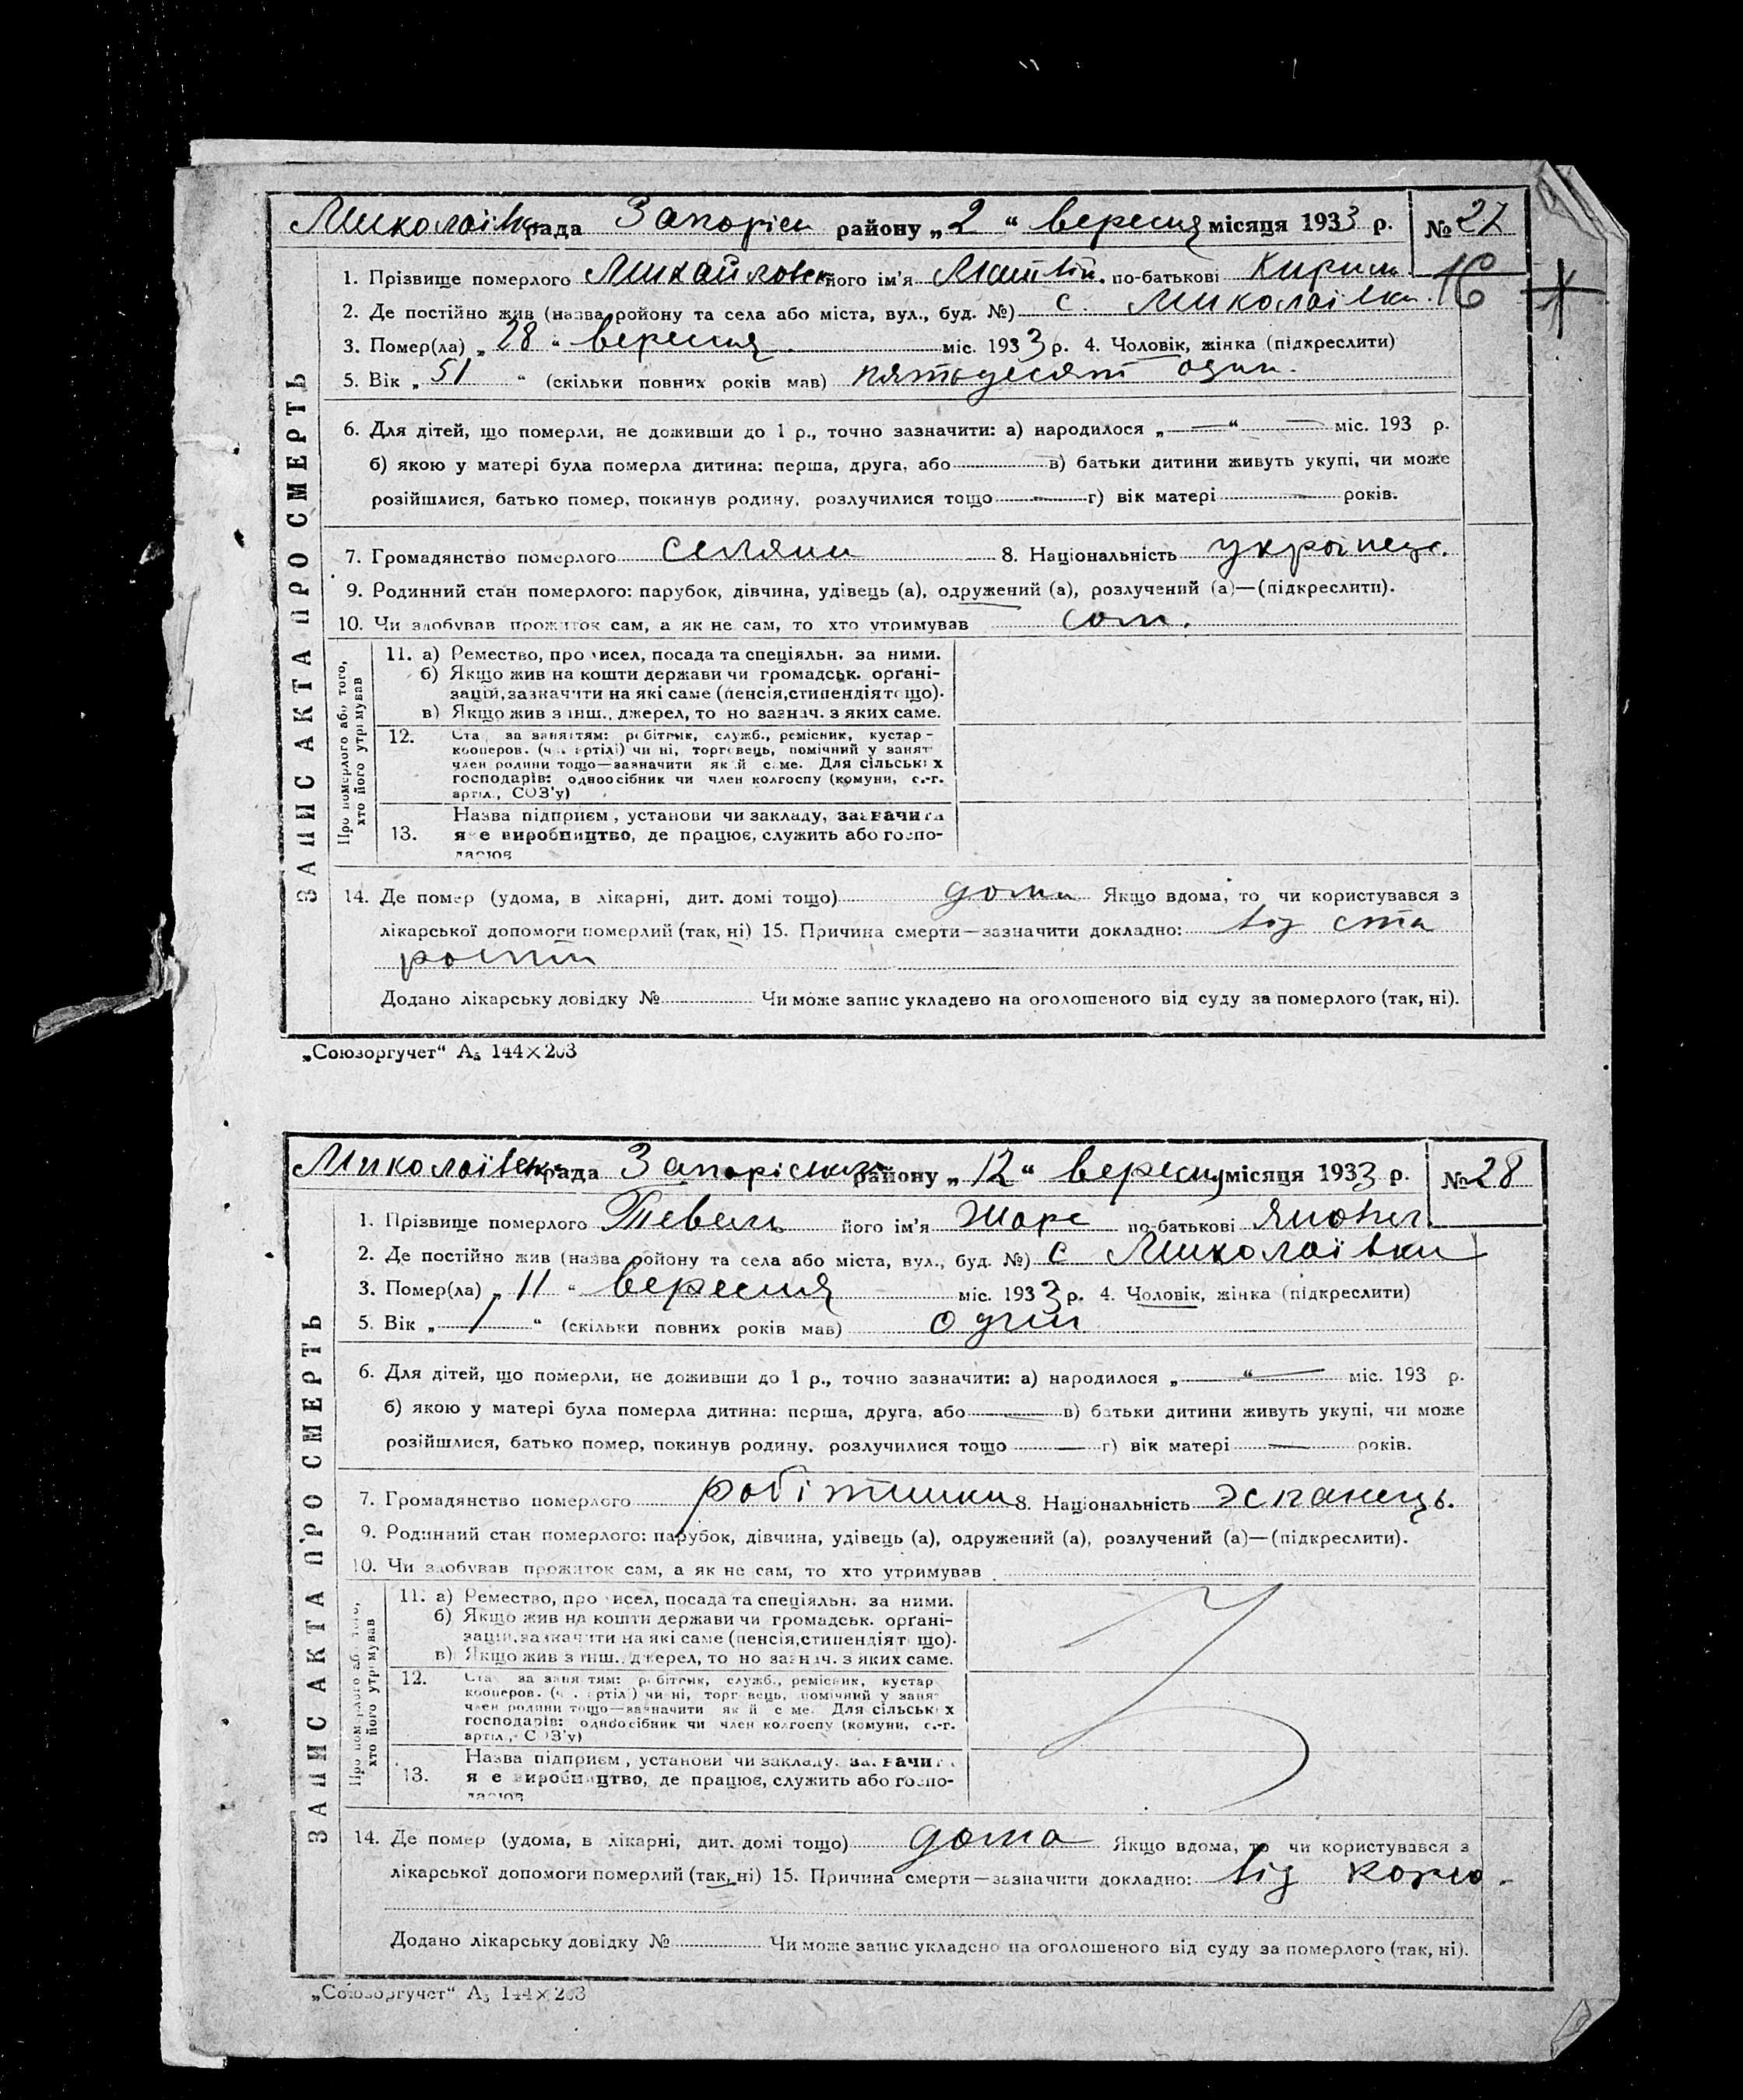 Миколаївск рада Запоріськ району „2“ вересня місяця 1933 р. № 27
1. Прізвище померлого Михайловськ його ім'я Матвій по-батькові Кирил
16
2. Де постійно жив (назва ройону та села або міста, вул., буд. №) с. Миколаївка
3. Помер(ла) „28“ вересня міс. 1933 р. 4. Чоловік, жінка (підкреслити)
5. Вік „51“ (скільки повних років мав) пятьдесят один.
6. Для дітей, що померли, не доживши до 1 р., точно зазначити: а) народилося „—“ — міс. 193 р.
б) якою у матері була померла дитина: перша, друга, або в) батьки дитини живуть укупі, чи може
розійшлися, батько помер, покинув родину, розлучилися тощо — г) вік матері — років.
7. Громадянство померлого селянин 8. Національність українець.
9. Родинний стан померлого: парубок, дівчина, удівець (а), одружений (а), розлучений (а)—(підкреслити).
10. Чи здобував прожиток сам, а як не сам, то хто утримував сам.
ЗАПИС АКТА ПРО СМЕРТЬ
Про померлого або того, хто його утримував
11. а) Ремество, про исел, посада та спеціяльн. за ними.
б) Якщо жив на кошти держави чи громадськ. органі-
зацій, зазначити на які саме (пенсія, стипендія тощо).
в) Якщо жив з інш. джерел, то но зазнач. з яких саме.
12. Ста за заняттям: робітник, служб., ремісник, кустар-
кооперов. (ч. артілі) чи ні, торговець, помічний у занят
член родини тощо—зазначити який саме. Для сільських
господарів: одноосібник чи член колгоспу (комуни, с.-г.
артіл., СОЗ'у)
13. Назва підприєм, установи чи закладу, зазначити
яке виробництво, де працює, служить або госпо-
дарює
14. Де помер (удома, в лікарні, дит. домі тощо) дома Якщо вдома, то чи користувався з
лікарської допомоги померлий (так, ні) 15. Причина смерти—зазначити докладно: від ста
рости
Додано лікарську довідку № Чи може запис укладено на оголошеного від суду за померлого (так, ні).
„Союзоргучет“ А₅ 144×203
Миколаївськ рада Запоріська району „12“ вересня місяця 1933 р. № 28
1. Прізвище померлого Тевель його ім'я Жорс по-батькові
2. Де постійно жив (назва ройону та села або міста, вул., буд. №) с Миколаївки
3. Помер(ла) „11“ вересня міс. 1933 р. 4. Чоловік, жінка (підкреслити)
5. Вік „1“ (скільки повних років мав) один
6. Для дітей, що померли, не доживши до 1 р., точно зазначити: а) народилося „—“ — міс. 193 р.
б) якою у матері була померла дитина: перша, друга, або — в) батьки дитини живуть укупі, чи може
розійшлися, батько помер, покинув родину, розлучилися тощо — г) вік матері — років.
7. Громадянство померлого робітники 8. Національність эспанець.
9. Родинний стан померлого: парубок, дівчина, удівець (а), одружений (а), розлучений (а)—(підкреслити).
10. Чи здобував прожиток сам, а як не сам, то хто утримував
ЗАПИС АКТА ПРО СМЕРТЬ
Про померлого або того, хто його утримував
11. а) Ремество, про исел, посада та спеціяльн. за ними.
б) Якщо жив на кошти держави чи громадськ. органі-
зацій, зазначити на які саме (пенсія, стипендія тощо).
в) Якщо жив з інш. джерел, то но зазнач. з яких саме.
12. Ста за заняттям: робітник, служб., ремісник, кустар
кооперов. (ч. артілі) чи ні, торговець, помічний у занят
член родини тощо—зазначити який саме. Для сільських
господарів: одноосібник чи член колгоспу (комуни, с.-г.
артіл., СОЗ'у)
13. Назва підприєм, установи чи закладу, зазначити
яке виробництво, де працює, служить або госпо-
дарює
14. Де помер (удома, в лікарні, дит. домі тощо) дома Якщо вдома, то чи користувався з
лікарської допомоги померлий (так, ні) 15. Причина смерти—зазначити докладно: від корю.
Додано лікарську довідку № Чи може запис укладено на оголошеного від суду за померлого (так, ні).
„Союзоргучет“ А₅ 144×203